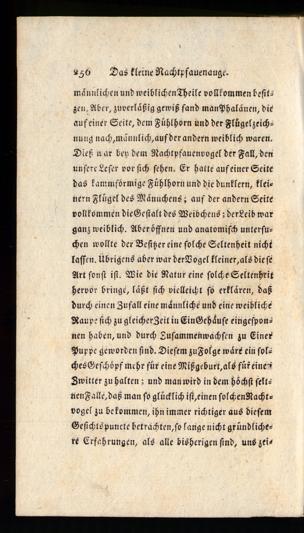 256 Das kleine Nachtpfauenauge.
männlichen und weiblichen Theile vollkommen besit-
zen. Aber, zuverläßig gewiß fand man Phalänen, die
auf einer Seite, dem Fühlhorn und der Flügelzeich-
nung nach, männlich, auf der andern weiblich waren.
Dieß war bey dem Nachtpfauenvogel der Fall, den
unsere Leser vor sich sehen. Er hatte auf einer Seite
das kammförmige Fühlhorn und die dunklern, klei-
nern Flügel des Männchens; auf der andern Seite
vollkommen die Gestalt des Weibchens: der Leib war
ganz weiblich. Aber öffnen und anatomisch untersu-
chen wollte der Besitzer eine solche Seltenheit nicht
lassen. Übrigens aber war der Vogel kleiner, als diese
Art sonst ist. Wie die Natur eine solche Seltenheit
hervor bringe, läßt sich vielleicht so erklären, daß
durch einen Zufall eine männliche und eine weibliche
Raupe sich zu gleicher Zeit in Ein Gehäuse eingespon-
nen haben, und durch Zusammenwachsen zu Einer
Puppe geworden sind. Diesem zu Folge wäre ein sol-
ches Geschöpf mehr für eine Mißgeburt, als für einen
Zwitter zu halten: und man wird in dem höchst selt-
nen Falle, daß man so glücklich ist, einen solchen Nacht-
vogel zu bekommen, ihn immer richtiger aus diesem
Gesichtspuncte betrachten, so lange nicht gründliche-
re Erfahrungen, als alle bisherigen sind, uns zei-